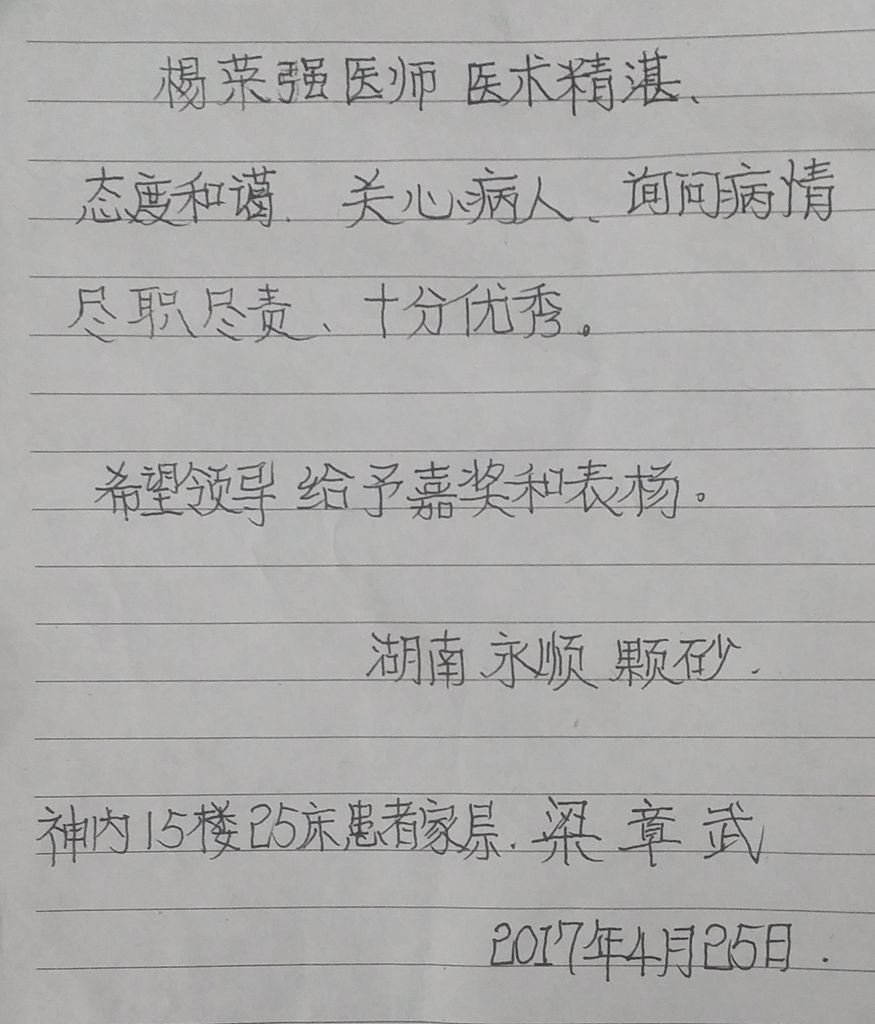 杨荣强医师 医术精湛、
态度和谒. 关心病人、询问病情
尽职尽责、十分优秀。
希望领导 给予嘉奖和表杨。
湖南 永顺 颗砂.
神内15楼25床患者家属. 梁章武
2017年4月25日.